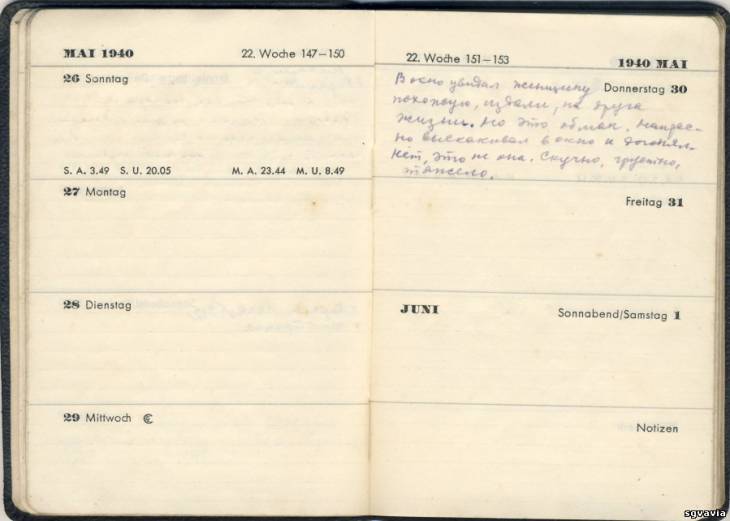 MAI 1940
22. Woche 147–150
26 Sonntag
S. A. 3.49 S. U. 20.05 M. A. 23.44 M. U. 8.49
27 Montag
28 Dienstag
29 Mittwoch
22. Woche 151–153
1940 MAI
Donnerstag 30
В окно увидал женщину
похожую, издали, на друга
жизни. Но это обман. Напрас-
но выскакивал в окно и догонял.
Нет, это не она. Скучно, грустно,
тяжело.
Freitag 31
JUNI
Sonnabend/Samstag 1
Notizen
sgvavia